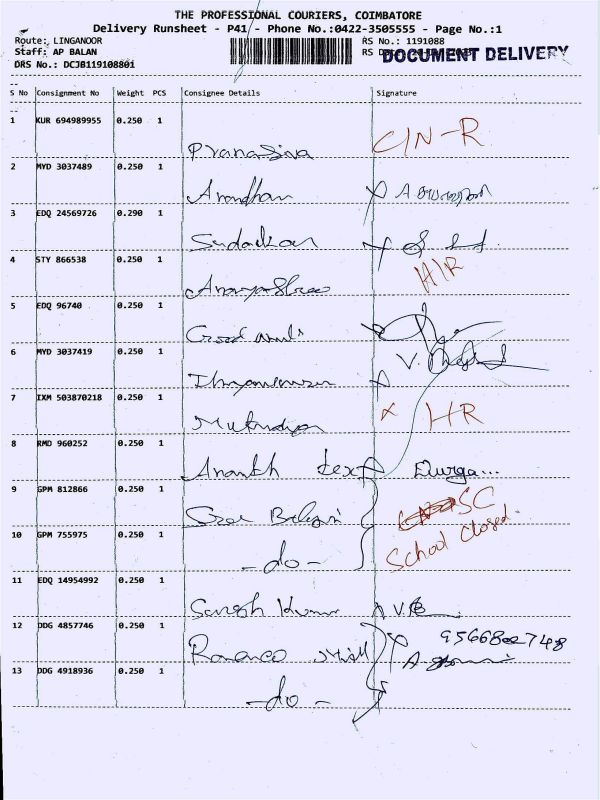 THE PROFESSIONAL COURIERS, COIMBATORE
Delivery Runsheet - P41 - Phone No.:0422-3505555 - Page No.:1
Route: LINGANOOR RS No.: 1191088
Staff: AP BALAN RS DOCUMENT DELIVERY
DRS No.: DCJB119108801
S No Consignment No Weight PCS Consignee Details Signature
1 KUR 694989955 0.250 1 CIN-R
Pranasiva
2 MYD 3037489 0.250 1
Anandhan
3 EDQ 24569726 0.290 1
Sudarkan
4 STY 866538 0.250 1 H/R
5 EDQ 96740 0.250 1
Good
6 MYD 3037419 0.250 1 V.
7 IXM 503870218 0.250 1 x HR
8 RMD 960252 0.250 1
Ananth tex Durga...
9 GPM 812866 0.250 1 SC
Sree
10 GPM 755975 0.250 1 School Closed.
-do-
11 EDQ 14954992 0.250 1
Saresh Kumar
12 DDG 4857746 0.250 1 9566802748
13 DDG 4918936 0.250 1
-do-